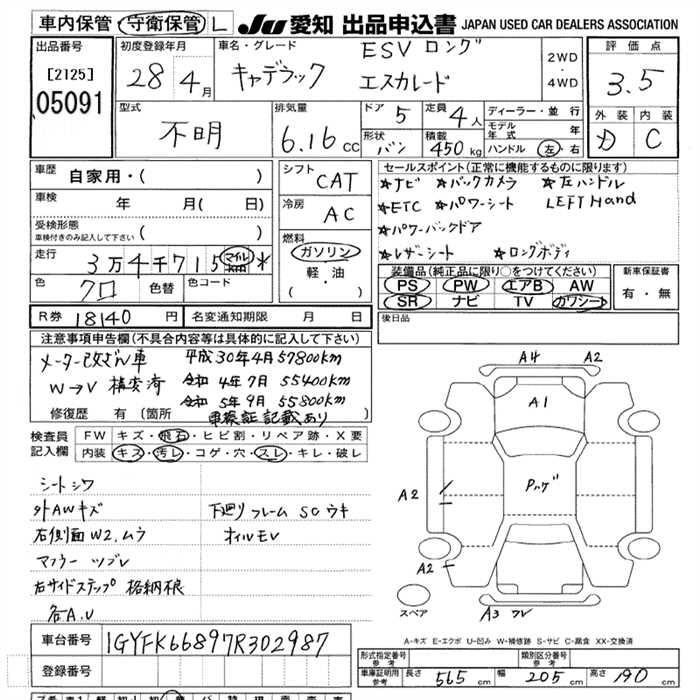 車内保管・守衛保管 L JU 愛知 出品申込書 JAPAN USED CAR DEALERS ASSOCIATION
出品番号 初度登録年月 車名・グレード ESV ロング 2WD・4WD 評価点
[2125] 28年4月 キャデラック エスカレード 3.5
05091 型式 不明 排気量 6.16cc ドア 5 定員 4人 ディーラー・並行 外装 内装
形状 バン 積載 450kg モデル年式 年 D C
ハンドル 左・右
車歴 自家用・( ) シフト CAT セールスポイント(正常に機能するものに限ります)
車検 年 月( 日) 冷房 AC ☆ナビ ☆バックカメラ ☆左ハンドル
受検形態 ☆ETC ☆パワーシート LEFT Hand
車検付きのみ記入して下さい ( ) ☆パワーバックドア
走行 3万4千715マイル km * 燃料 ガソリン ☆レザーシート ☆ロングボディ
色 クロ 色替 色コード 軽・油 ( ) 装備品(純正品に限り〇をつけてください) 新車保証書
PS PW エアB AW 有・無
SR ナビ TV カワシート
R券 18140円 名変通知期限 月 日 後日品
注意事項申告欄(不具合内容等は具体的に記入して下さい)
メーター改ざん車 平成30年4月57800km
W→V 構変済 令和4年7月 55400km
令和5年9月 55800km
修復歴 有 (箇所 車検証記載あり
検査員記入欄 FW キズ・飛石・ヒビ割・リペア跡・X要
内装 キズ・汚レ・コゲ・穴・スレ・キレ・破レ
シートシワ
外AWキズ 下廻りフレーム SC ウキ
右側面W2.ムラ オイルモレ
マフラー ツブレ
右サイドステップ 格納不良
各A.U
A4 A2
A1
A2 Pハゲ
A2
スペア A3 ワレ
A-キズ E-エクボ U-凹み W-補修跡 S-サビ C-腐食 XX-交換済
車台番号 1GYFK66897R302987
登録番号 形式指定番号 参考 類別区分番号 参考
車庫証明用 参考 長さ 565cm 幅 205cm 高さ 190cm